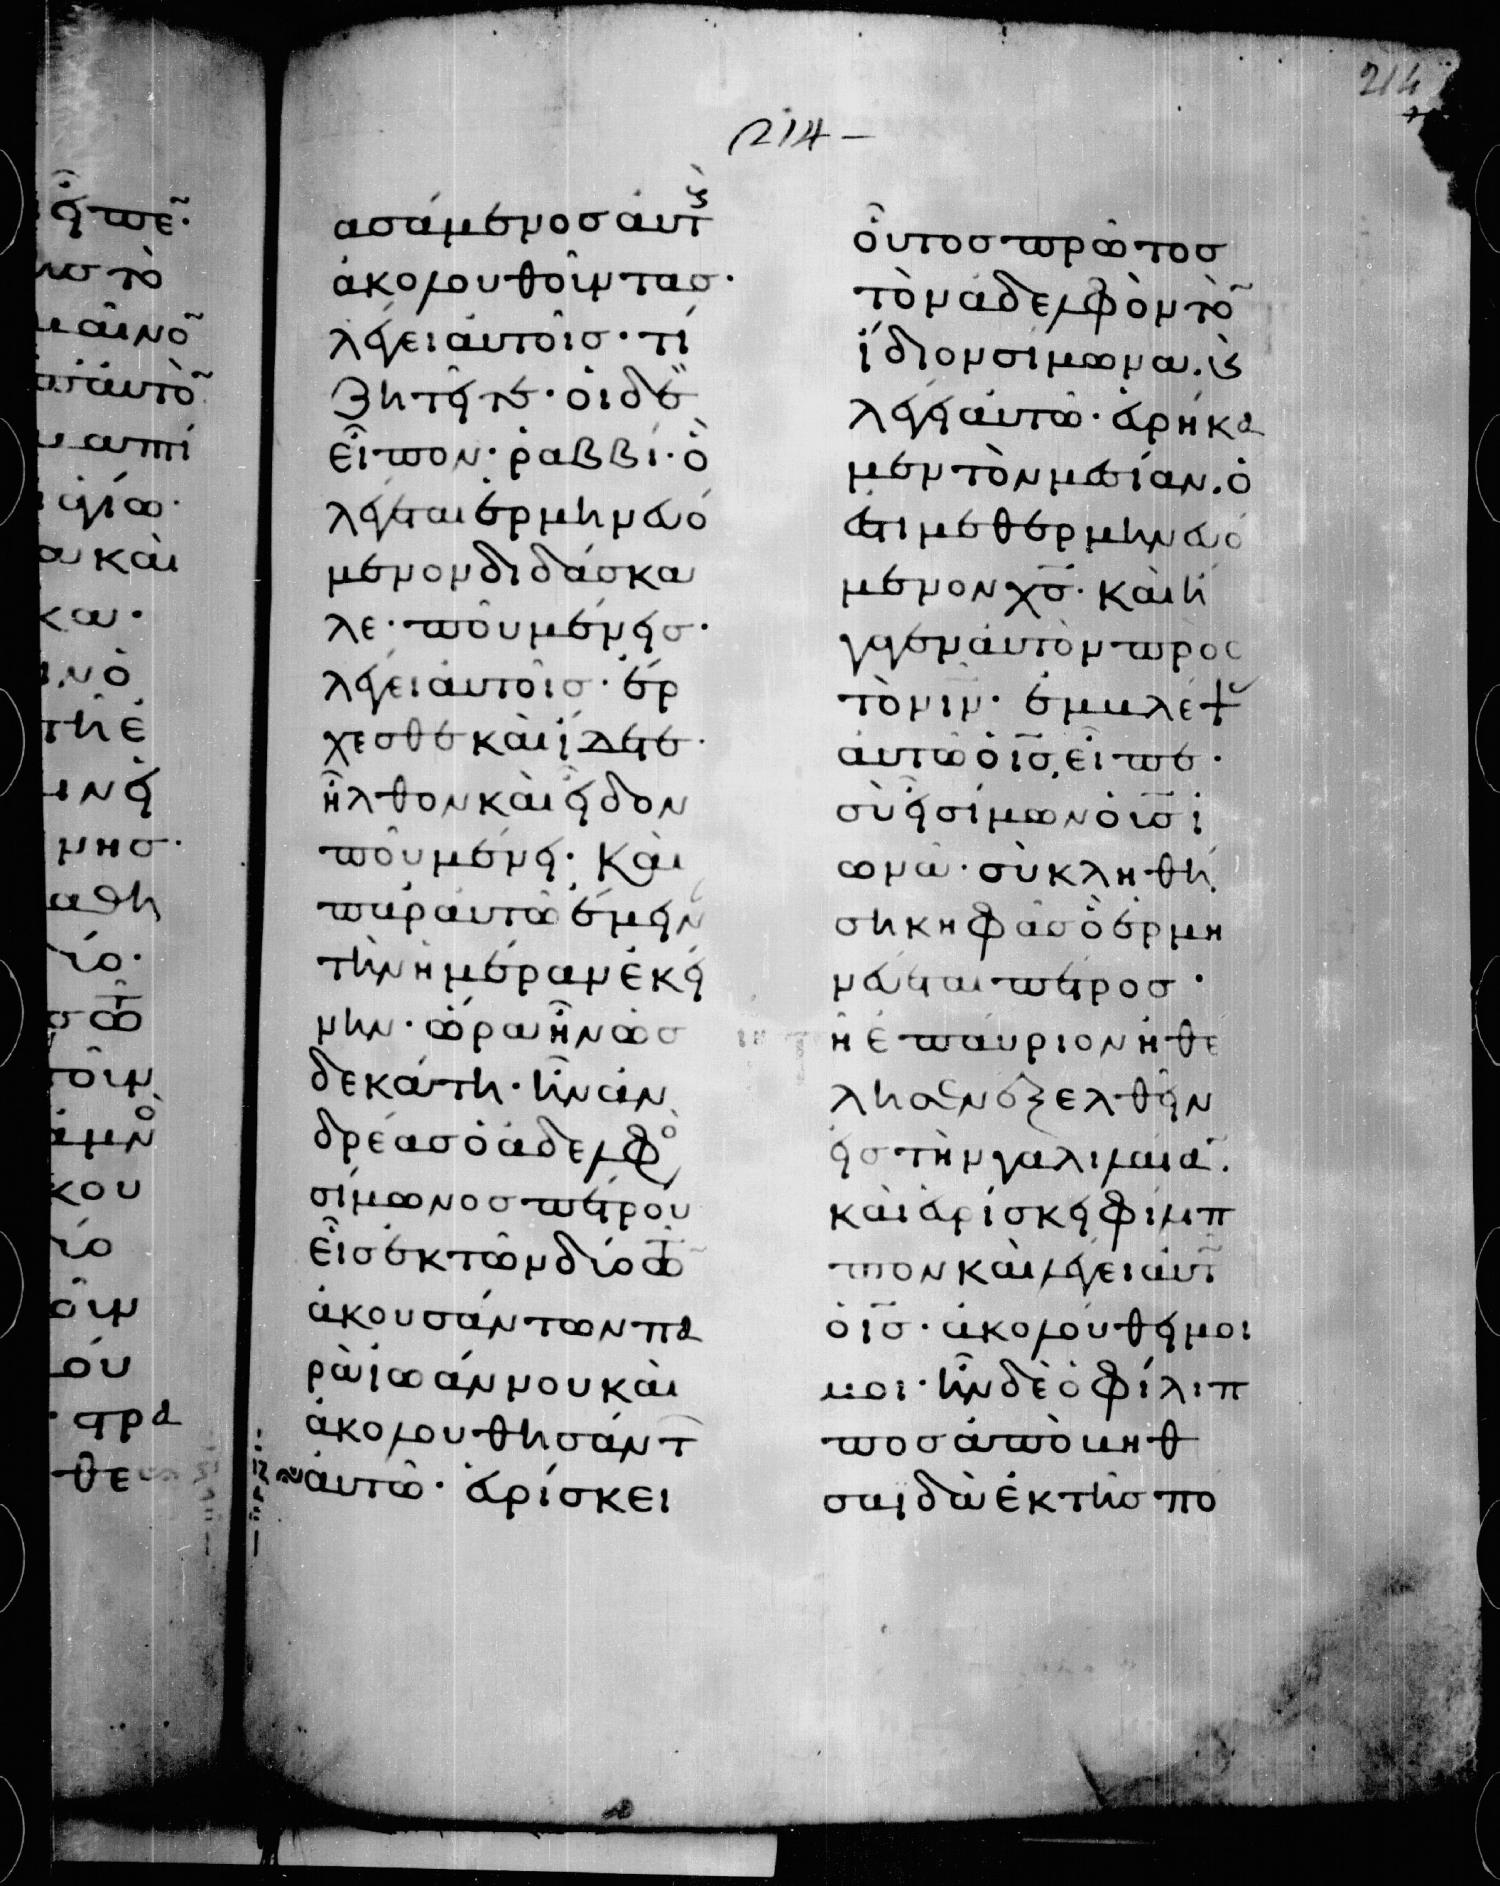 214
214 –
ῇ πε῀·
νσ τὸ
αινο῀
αυτὸ῀
αυτὶ
είω·
α καὶ
κα·
νὸ
τη ἐ
νει
μησ·
αθη
ίο·
όυν
ἀμν̊
κου
ίο
όιν
όυ
· ερα
θε
ασάμενοσ ἀυτ̄ς̀
ἀκολουθοῦντασ·
λέγει ἀυτοῖσ· τί
ζητεῖτε· οἱ δὲ
εἶπον· ῥαββὶ· ὃ
λέγεται ἑρμηνευό
μενον διδάσκα
λε· ποῦ μένεισ·
λέγει ἀυτοῖσ· ἔρ
χεσθε καὶ ἴδετε·
ἦλθον καὶ εἶδον
ποῦ μένει· Καὶ
παρ' ἀυτῶ ἔμειν
τὴν ἡμέραν ἐκεί
νην· ὥρα ἦν ὡσ
δεκάτη· ἦν ἀν
δρέασ ὁ ἀδελφο
σίμωνοσ πέτρου
εἷσ ἐκ τῶν δύο τῶ῀
ἀκουσάντων πα
ρὰ ἰωάννου καὶ
ἀκολουθησάντ̄
ἀυτῶ· ἑυρίσκει
οὗτοσ πρῶτοσ
τὸν ἀδελφὸν τὸ῀
ἴδιον σίμωνα. κ̀
λέγει ἀυτῶ· ἑυρήκα
μεν τὸν μεσίαν. ὅ
ἐστι μεθερμηνευό
μενον χ̄σ̄· Καὶ ἤ
γαγεν ἀυτὸν πρὸσ
τὸν ῑν̄· ἐμβλέψ
ἀυτῶ ὁ ῑσ̄, εἶπε·
σὺ εἶ σίμων ὁ υἱὸσ ἰ
ωνᾶ· σὺ κληθή
ση κηφᾶσ ὃ ἑρμη
νεύεται πέτροσ·
τῆ ἐπάυριον ἠθέ
λησεν ὁ ἐξελθεῖν
εἰσ τὴν γαλιλαία῀.
καὶ ἑυρίσκει φίλιπ
πον καὶ λέγει ἀυτ῀
ὁ ῑσ̄· ἀκολούθει μοι
μοι· ἦν δὲ ὁ φίλιπ
ποσ ἀπὸ βηθ
σαϊδὰ ἐκ τῆσ πο